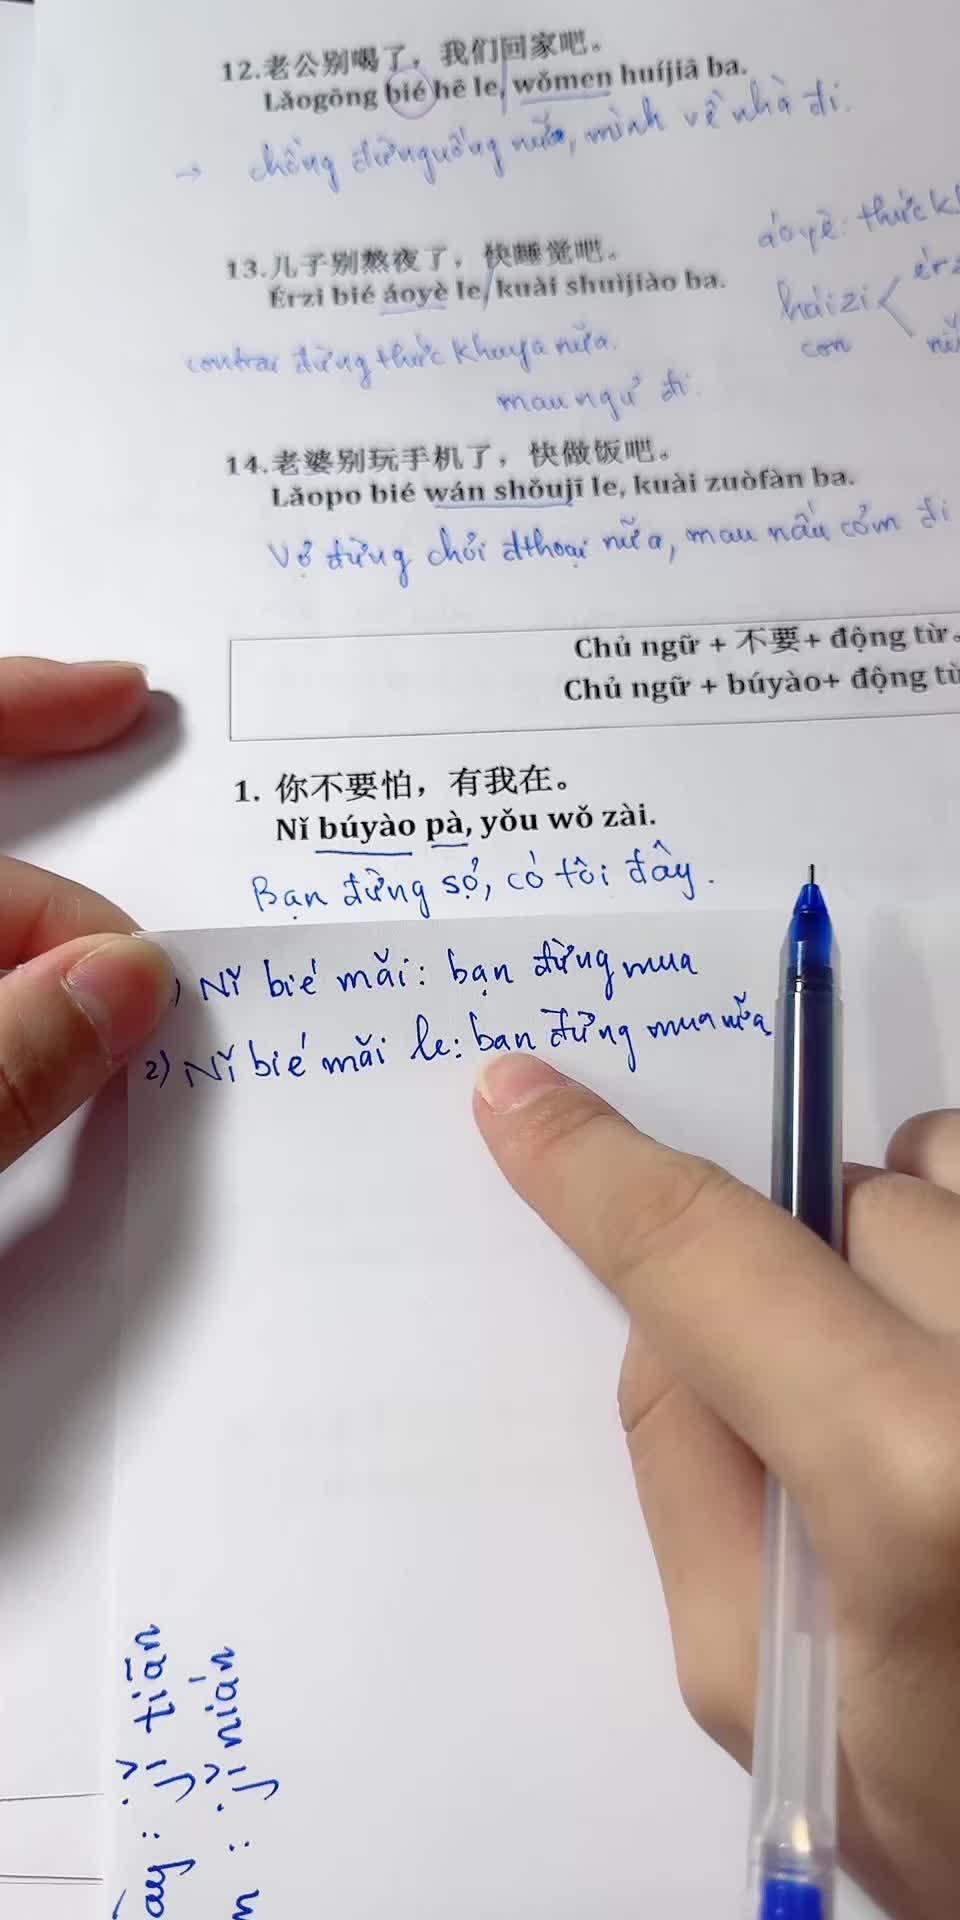 12.老公别喝了，我们回家吧。
Lǎogōng bié hē le, wǒmen huíjiā ba.
→ chồng đừng uống nữa, mình về nhà đi.
áoyè: thức
13.儿子别熬夜了，快睡觉吧。
Érzi bié áoyè le, kuài shuìjiào ba.
háizi <
con
con trai đừng thức khuya nữa.
mau ngủ đi.
14.老婆别玩手机了，快做饭吧。
Lǎopo bié wán shǒujī le, kuài zuòfàn ba.
Vợ đừng chơi đthoại nữa, mau nấu cơm đi
Chủ ngữ + 不要+ động từ
Chủ ngữ + búyào+ động từ
1. 你不要怕，有我在。
Nǐ búyào pà, yǒu wǒ zài.
Bạn đừng sợ, có tôi đây.
1) Nǐ bié mǎi: bạn đừng mua
2) Nǐ bié mǎi le: bạn đừng mua nữa
: jǐ tiān
: jǐ nián